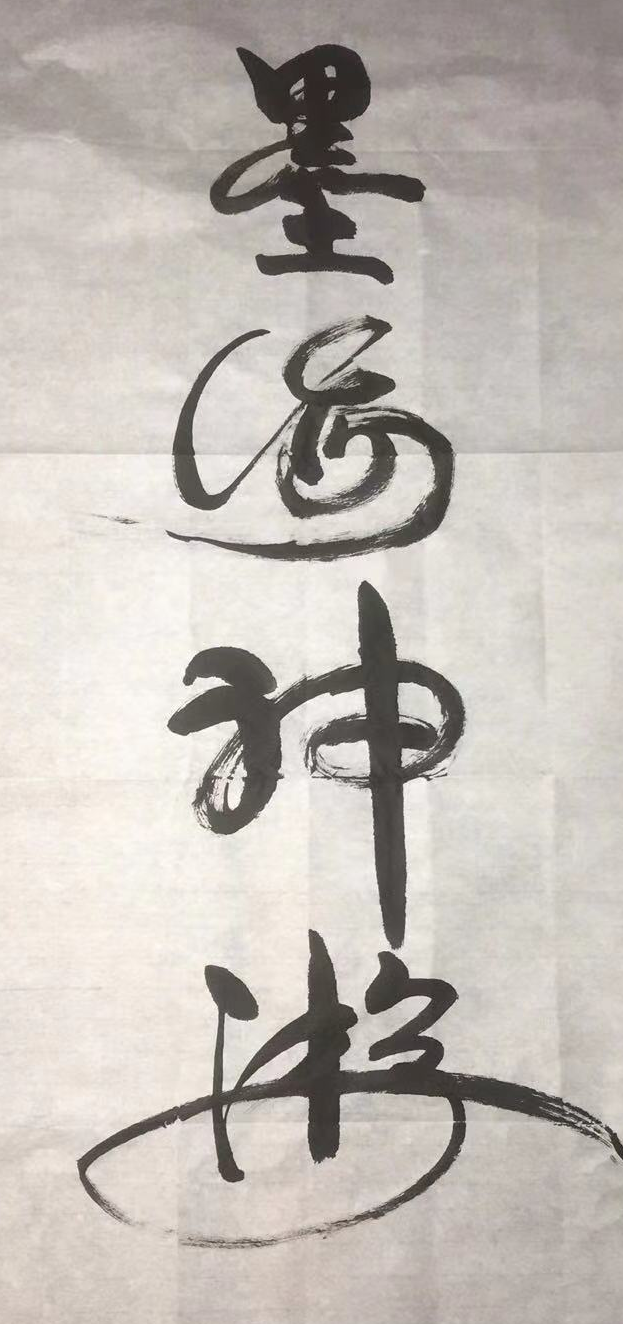 墨海神游